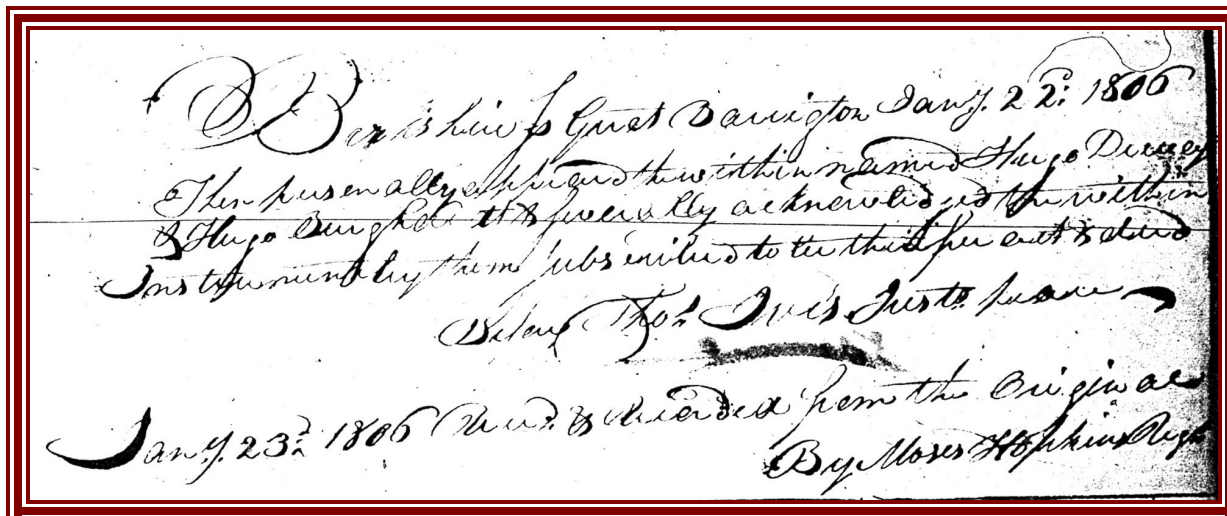 Berkshire ss Great Barrington Jany. 22d: 1806
Then personally appeared the within named Hugo Dewey
& Hugo Burghardt & severally acknowledged the within
Instrument by them subscribed to be their free act & deed
Before Thos. Ives Justs. peace
Jany. 23d: 1806 Recd. & recorded from the Original
By Moses Hopkins Regr